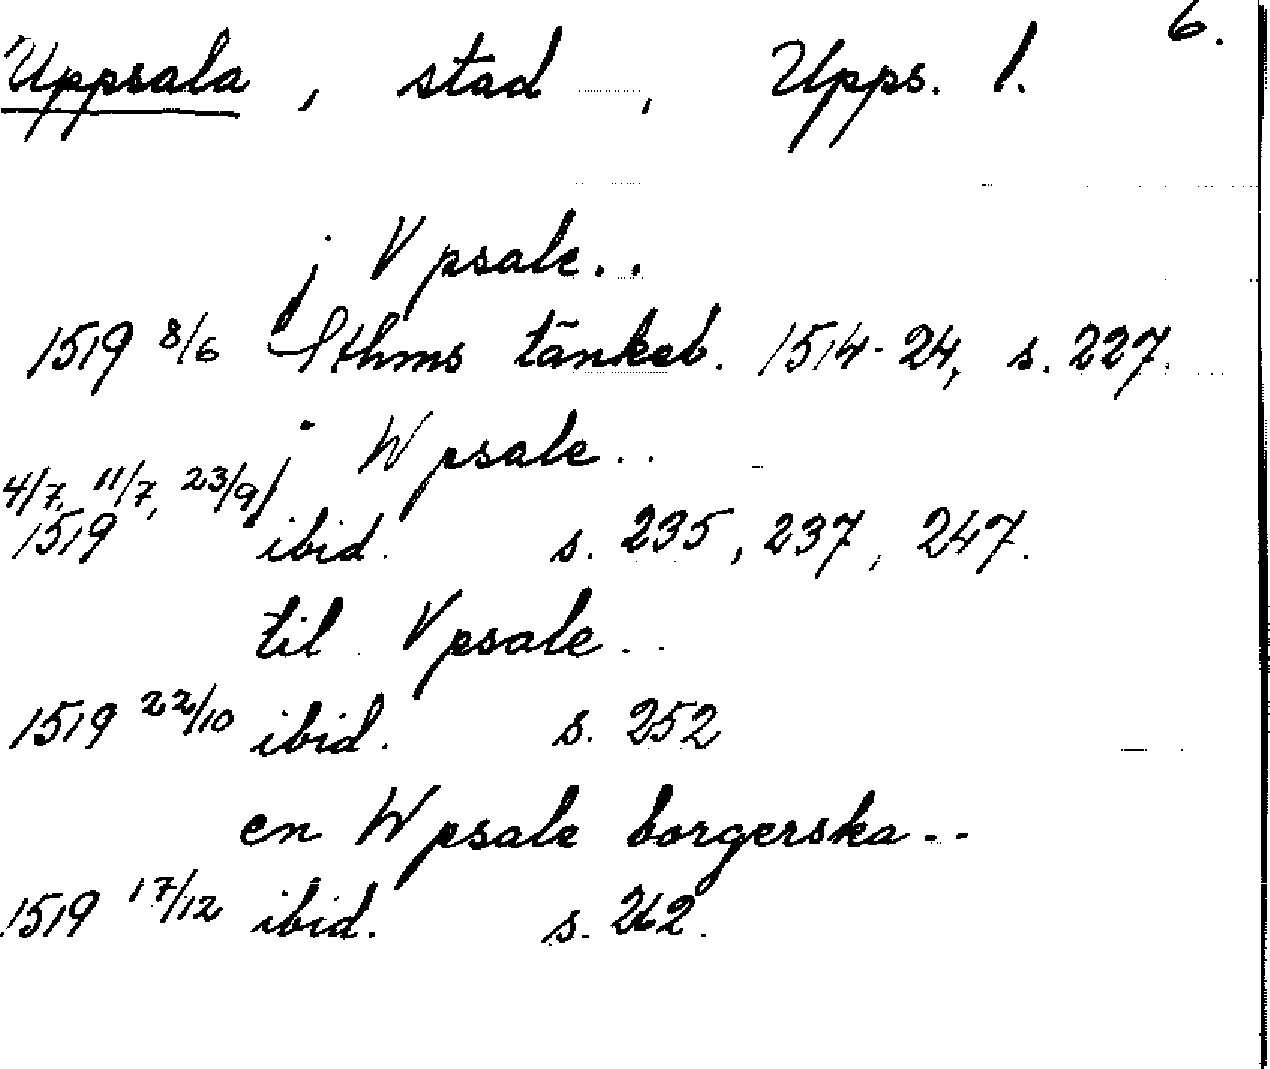 6.
Uppsala, stad, Upps. l.
j Vpsale..
1519 8/6 Sthms tänkeb. 1514-24, s. 227.
j Wpsale..
4/7, 11/7, 23/9
1519 ibid. s. 235, 237, 247.
til Vpsale..
1519 22/10 ibid. s. 252
en Wpsale borgerska..
1519 17/12 ibid. s. 262.